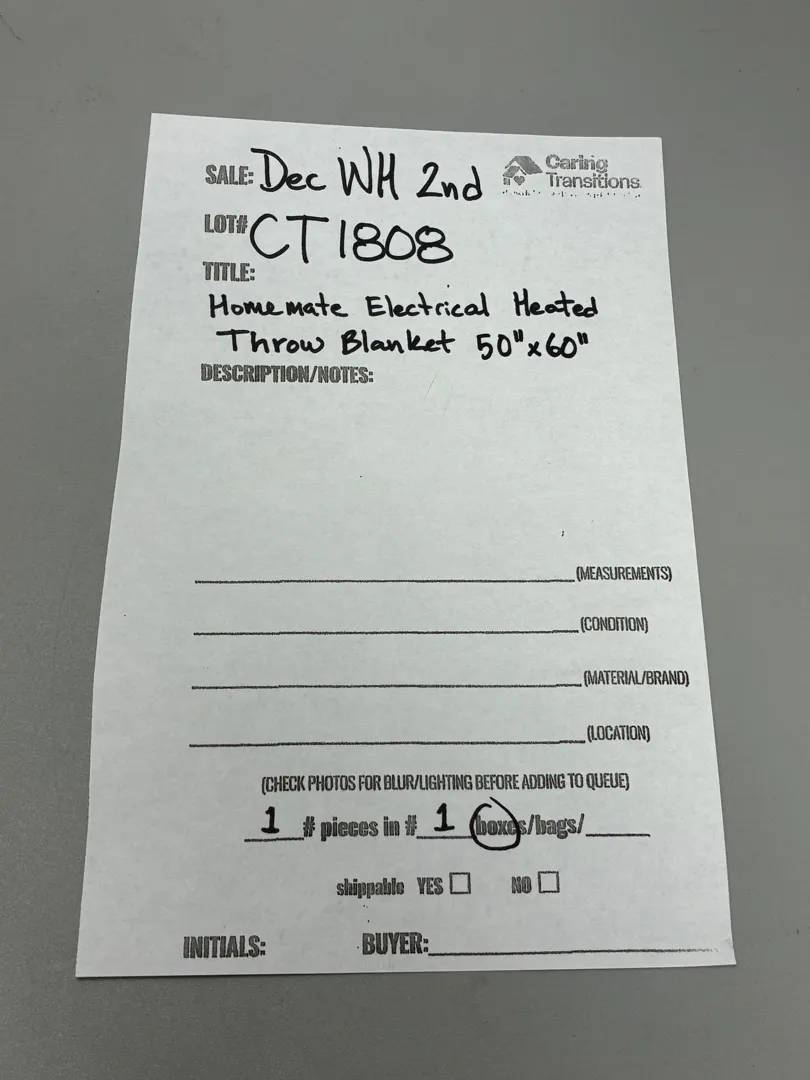 SALE: Dec WH 2nd
Caring
Transitions
LOT# CT1808
TITLE:
Homemate Electrical Heated
Throw Blanket 50"x60"
DESCRIPTION/NOTES:
(MEASUREMENTS)
(CONDITION)
(MATERIAL/BRAND)
(LOCATION)
(CHECK PHOTOS FOR BLUR/LIGHTING BEFORE ADDING TO QUEUE)
1 # pieces in # 1 boxes/bags/
shippable YES NO
INITIALS: BUYER: